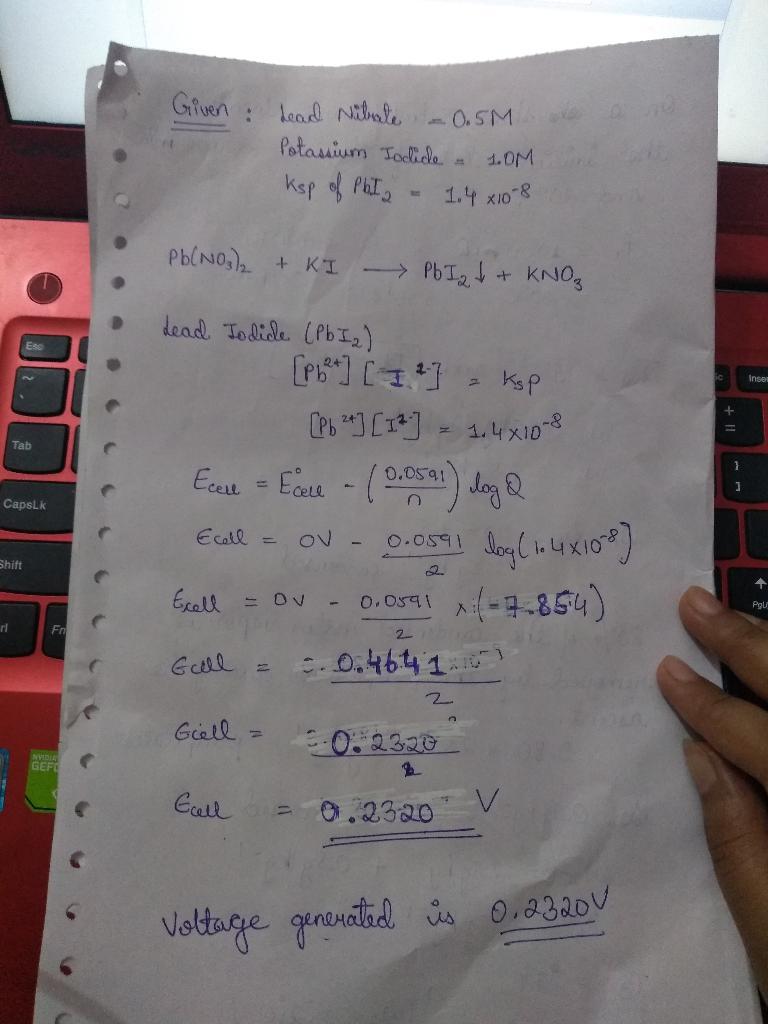 Given : Lead Nitrate = 0.5M
Potassium Iodide = 1.0M
Ksp of PbI₂ = 1.4 x10⁻⁸
Pb(NO₃)₂ + KI ⟶ PbI₂↓ + KNO₃
Lead Iodide (PbI₂)
[Pb²⁺] [I²⁻] = Ksp
[Pb²⁺][I²⁻] = 1.4x10⁻⁸
Ecell = E°cell - (0.0591/n) log Q
Ecell = 0V - 0.0591/2 log(1.4x10⁻⁸)
Ecell = 0V - 0.0591/2 x (-7.854)
Ecell = 0.4641/2
Ecell = 0.2320
Ecell = 0.2320 V
Voltage generated is 0.2320V
Esc
~
Tab
CapsLk
Shift
Fn
Inser
+
=
}
]
PgU
NVIDIA
GEFO